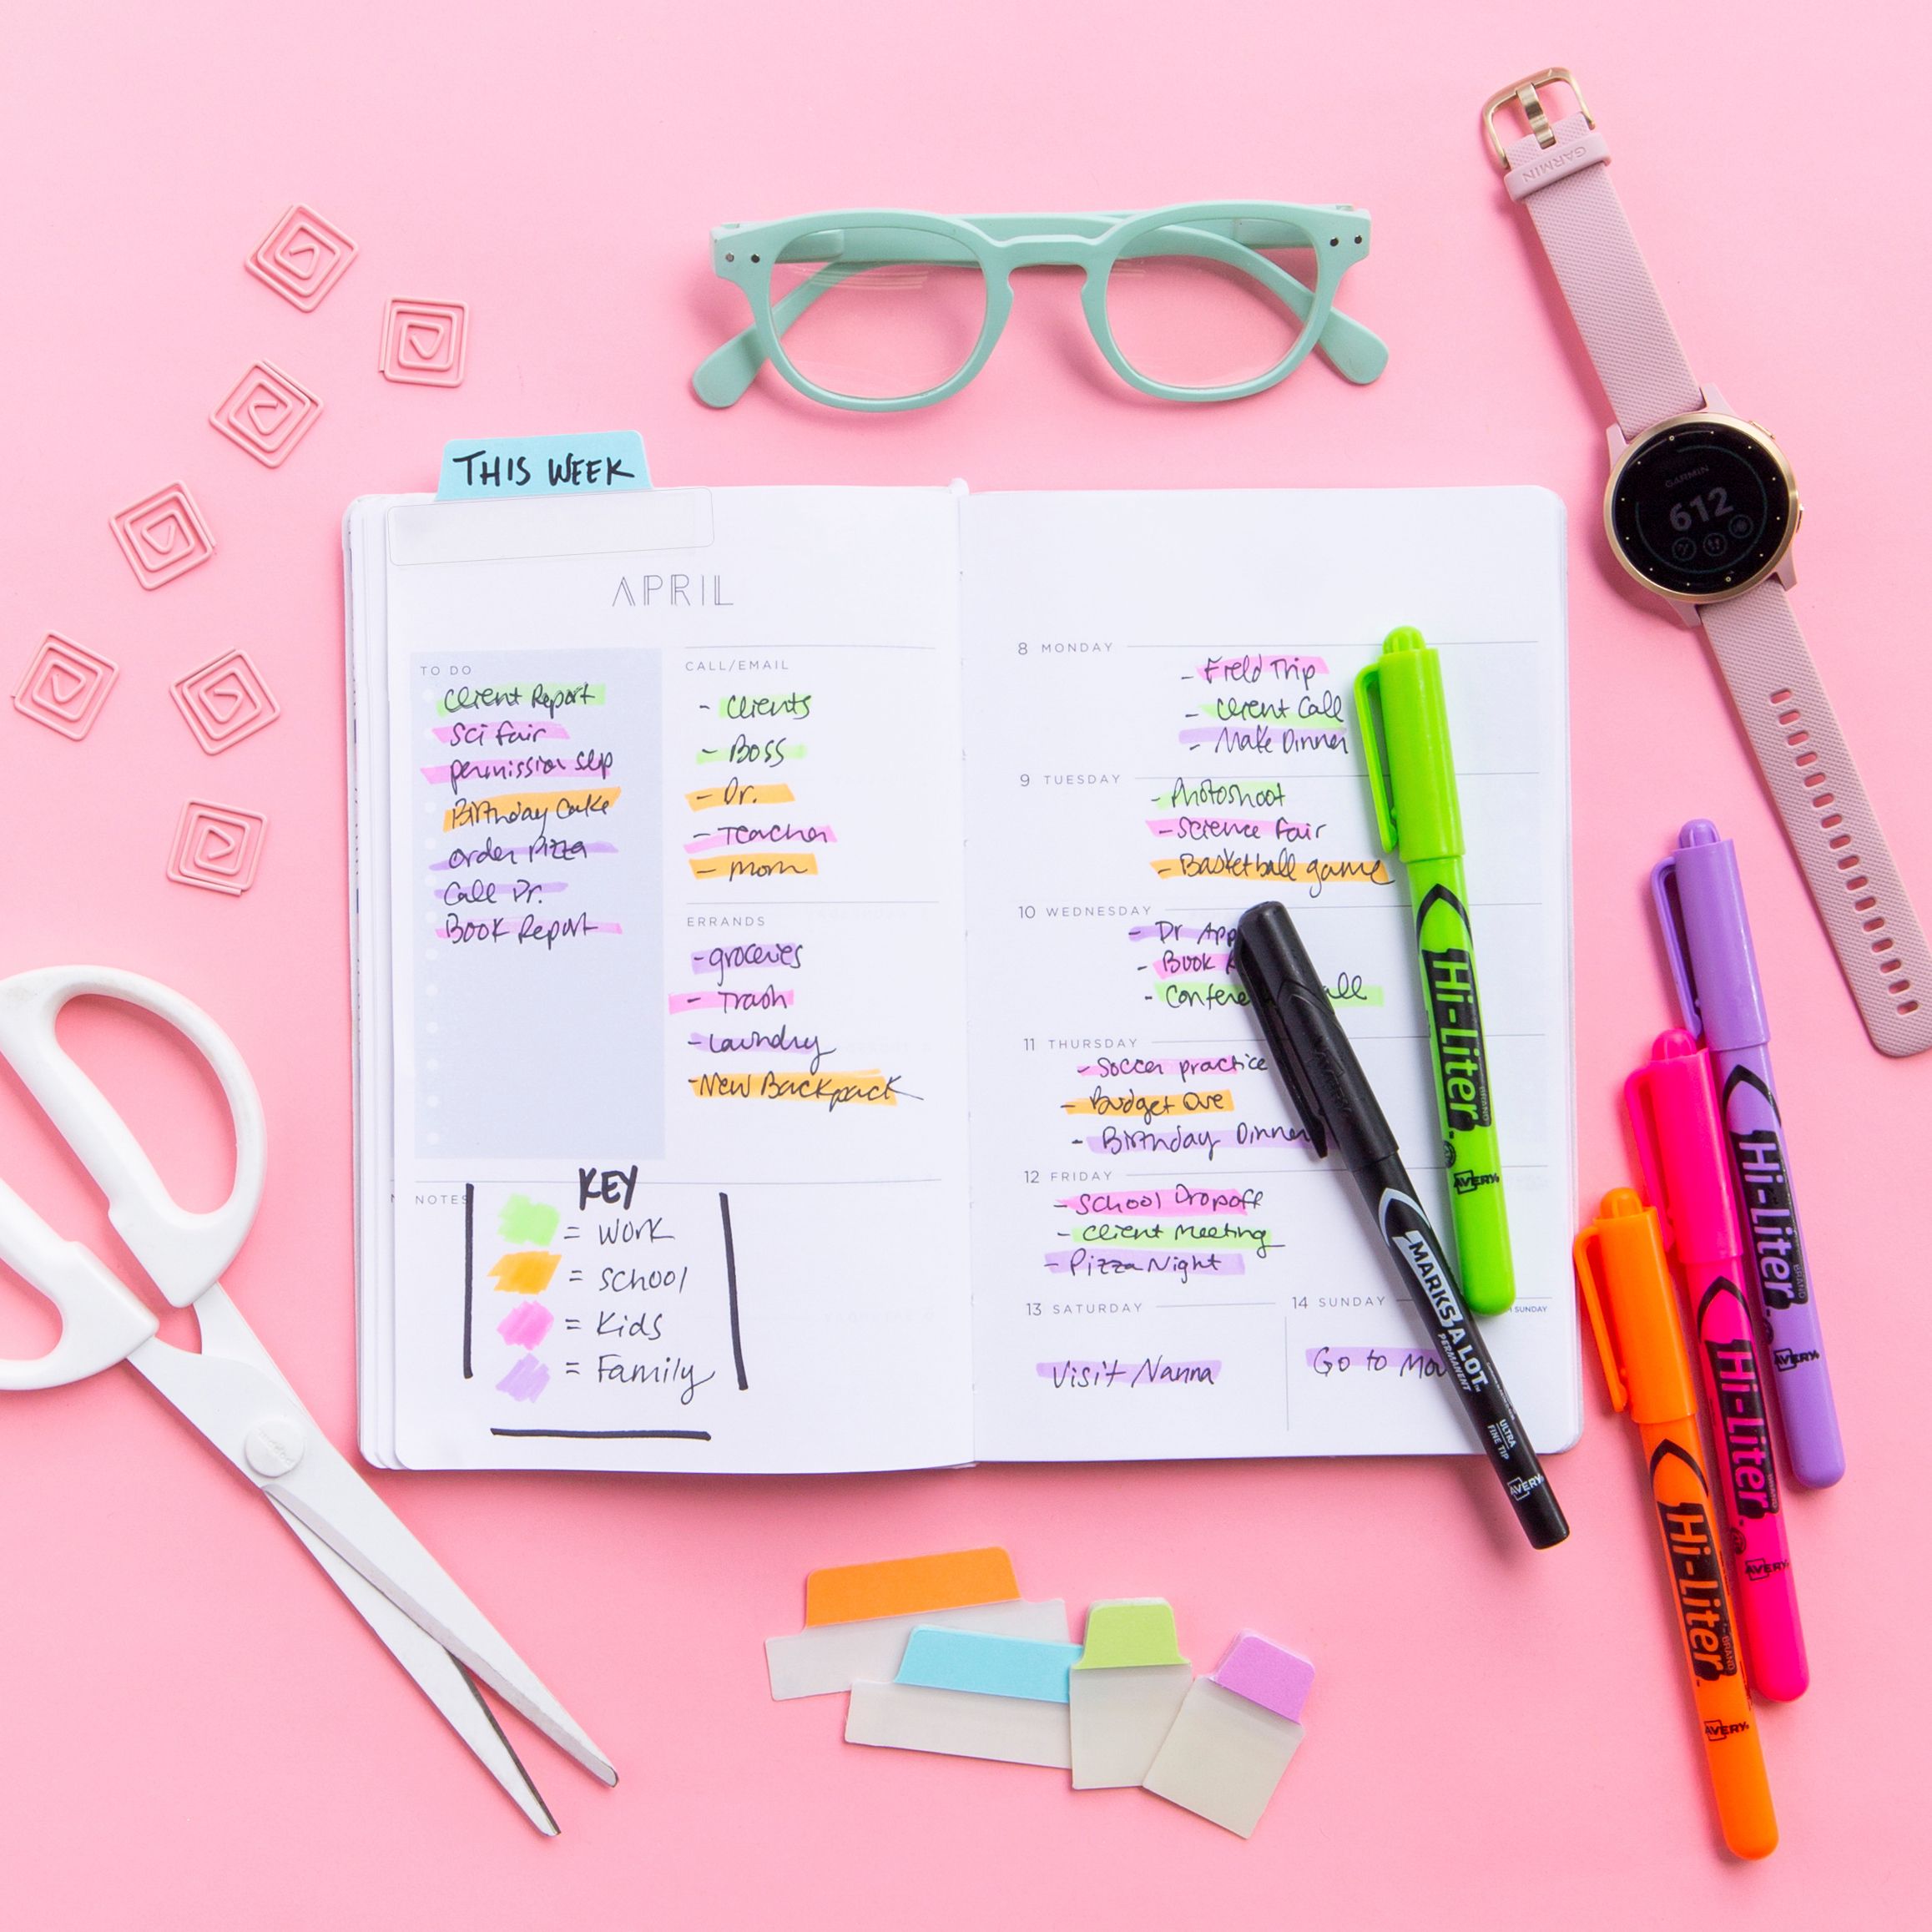 GARMIN
GARMIN
612
THIS WEEK
APRIL
TO DO
Client Report
Sci Fair
permission slip
Birthday Cake
order Pizza
Call Dr.
Book Report
CALL/EMAIL
- Clients
- Boss
- Dr.
- Teacher
- Mom
ERRANDS
- groceries
- Trash
- Laundry
- New Backpack
NOTES
KEY
= Work
= School
= Kids
= Family
8 MONDAY
- Field Trip
- Client Call
- Make Dinner
9 TUESDAY
- Photoshoot
- Science Fair
- Basketball game
10 WEDNESDAY
- Dr App
- Book
- Confere all
11 THURSDAY
- Soccer practice
- Budget Due
- Birthday Dinner
12 FRIDAY
- School Dropoff
- Client Meeting
- Pizza Night
13 SATURDAY
Visit Nanna
14 SUNDAY
Go to Mov
SUNDAY
Hi-Liter
BRAND
AVERY
MARKS A LOT
PERMANENT
ULTRA
FINE TIP
AVERY
Hi-Liter
BRAND
AVERY
Hi-Liter
BRAND
AVERY
Hi-Liter
BRAND
AVERY